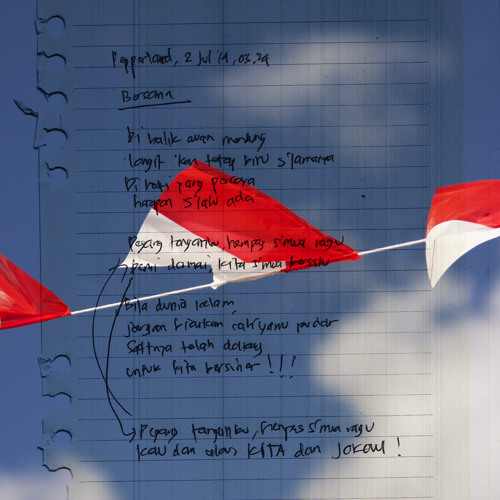 Pepperland, 2 Jul '14, 03.24
Bersama
Di balik awan mendung
langit 'kan tetap biru s'lamanya
Di hati yang percaya
harapan s'lalu ada
Pegang tanganku, hempas s'mua ragu
Demi damai, kita s'mua
Bila dunia kelam,
jangan biarkan cahyamu pudar
Saatnya telah datang
untuk kita bersinar !!!
Pegang tanganku, hempas s'mua ragu
kau dan KITA dan JOKOWI !